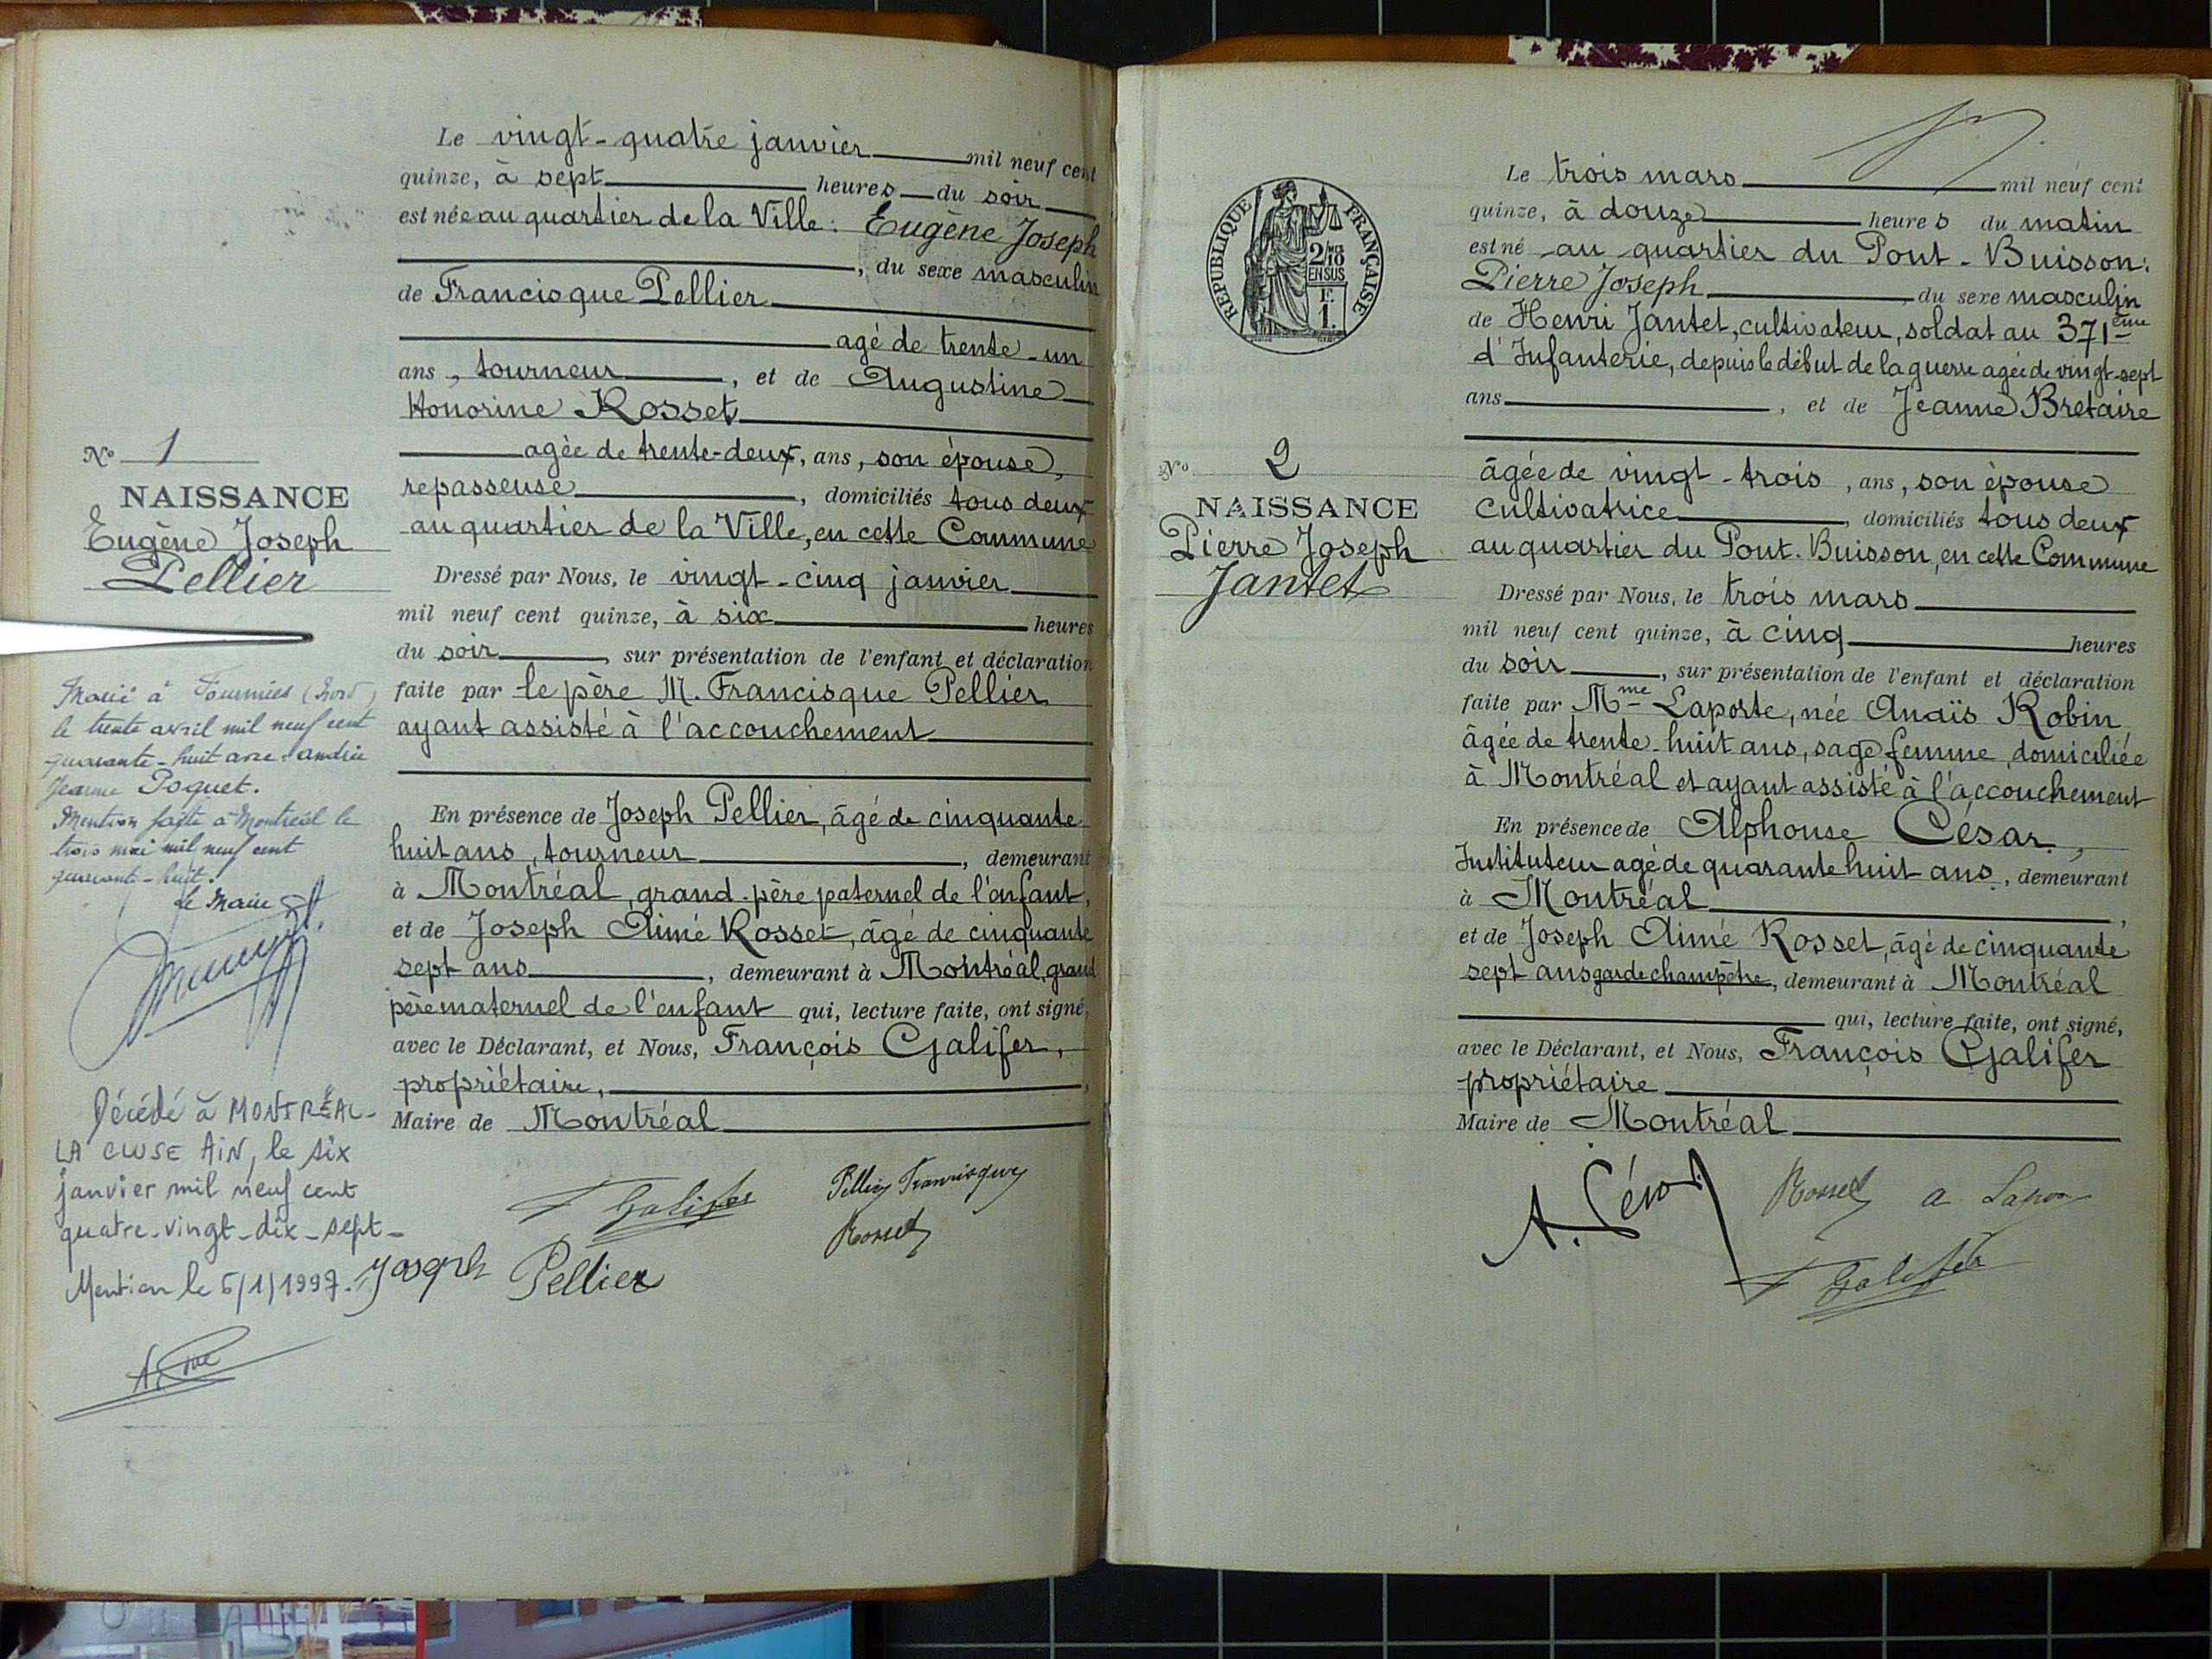 Le vingt-quatre janvier mil neuf cent
quinze, à sept heures du soir
est née au quartier de la Ville: Eugène Joseph
, du sexe masculin
de Francisque Pellier
agé de trente-un
ans, tourneur, et de Augustine
Honorine Rosset
agée de trente-deux, ans, son épouse,
repasseuse, domiciliés tous deux
au quartier de la Ville, en cette Commune
Dressé par Nous, le vingt-cinq janvier
mil neuf cent quinze, à six heures
du soir, sur présentation de l'enfant et déclaration
faite par le père M. Francisque Pellier
ayant assisté à l'accouchement
En présence de Joseph Pellier, âgé de cinquante
huit ans, tourneur, demeurant
à Montréal, grand-père paternel de l'enfant,
et de Joseph Aimé Rosset, âgé de cinquante
sept ans, demeurant à Montréal, grand
père maternel de l'enfant qui, lecture faite, ont signé,
avec le Déclarant, et Nous, François Galifer,
propriétaire,
Maire de Montréal
F Galifer
Pellier Francisque
Rosset
Joseph Pellier
No 1
NAISSANCE
Eugène Joseph
Pellier
Marié à Fourmies (Nord)
le trente avril mil neuf cent
quarante-huit avec andrée
Jeanne Poquet.
Mention faite à Montréal le
trois mai mil neuf cent
quarante-huit.
Le Maire
Décédé à MONTRÉAL-
LA CLUSE AIN, le six
janvier mil neuf cent
quatre-vingt-dix-sept-
Mention le 6/1/1997.
Le trois mars mil neuf cent
quinze, à douze heures du matin
est né au quartier du Pont-Buisson:
Pierre Joseph, du sexe masculin
de Henri Jantet, cultivateur, soldat au 371ème
d'Infanterie, depuis le début de la guerre agée de vingt-sept
ans, et de Jeanne Bretaire
âgée de vingt-trois, ans, son épouse
cultivatrice, domiciliés tous deux
au quartier du Pont-Buisson, en cette Commune
Dressé par Nous, le trois mars
mil neuf cent quinze, à cinq heures
du soir, sur présentation de l'enfant et déclaration
faite par Mme Laporte, née Anaïs Robin
âgée de trente-huit ans, sage-femme, domiciliée
à Montréal et ayant assisté à l'accouchement
En présence de Alphonse César,
Instituteur agé de quarante huit ans, demeurant
à Montréal,
et de Joseph Aimé Rosset, âgé de cinquante
sept ans garde champêtre, demeurant à Montréal
qui, lecture faite, ont signé,
avec le Déclarant, et Nous, François Galifer
propriétaire
Maire de Montréal
A. César
Rosset
F Galifer
REPUBLIQUE FRANÇAISE
2/10
EN SUS
1F.
No 2
NAISSANCE
Pierre Joseph
Jantet